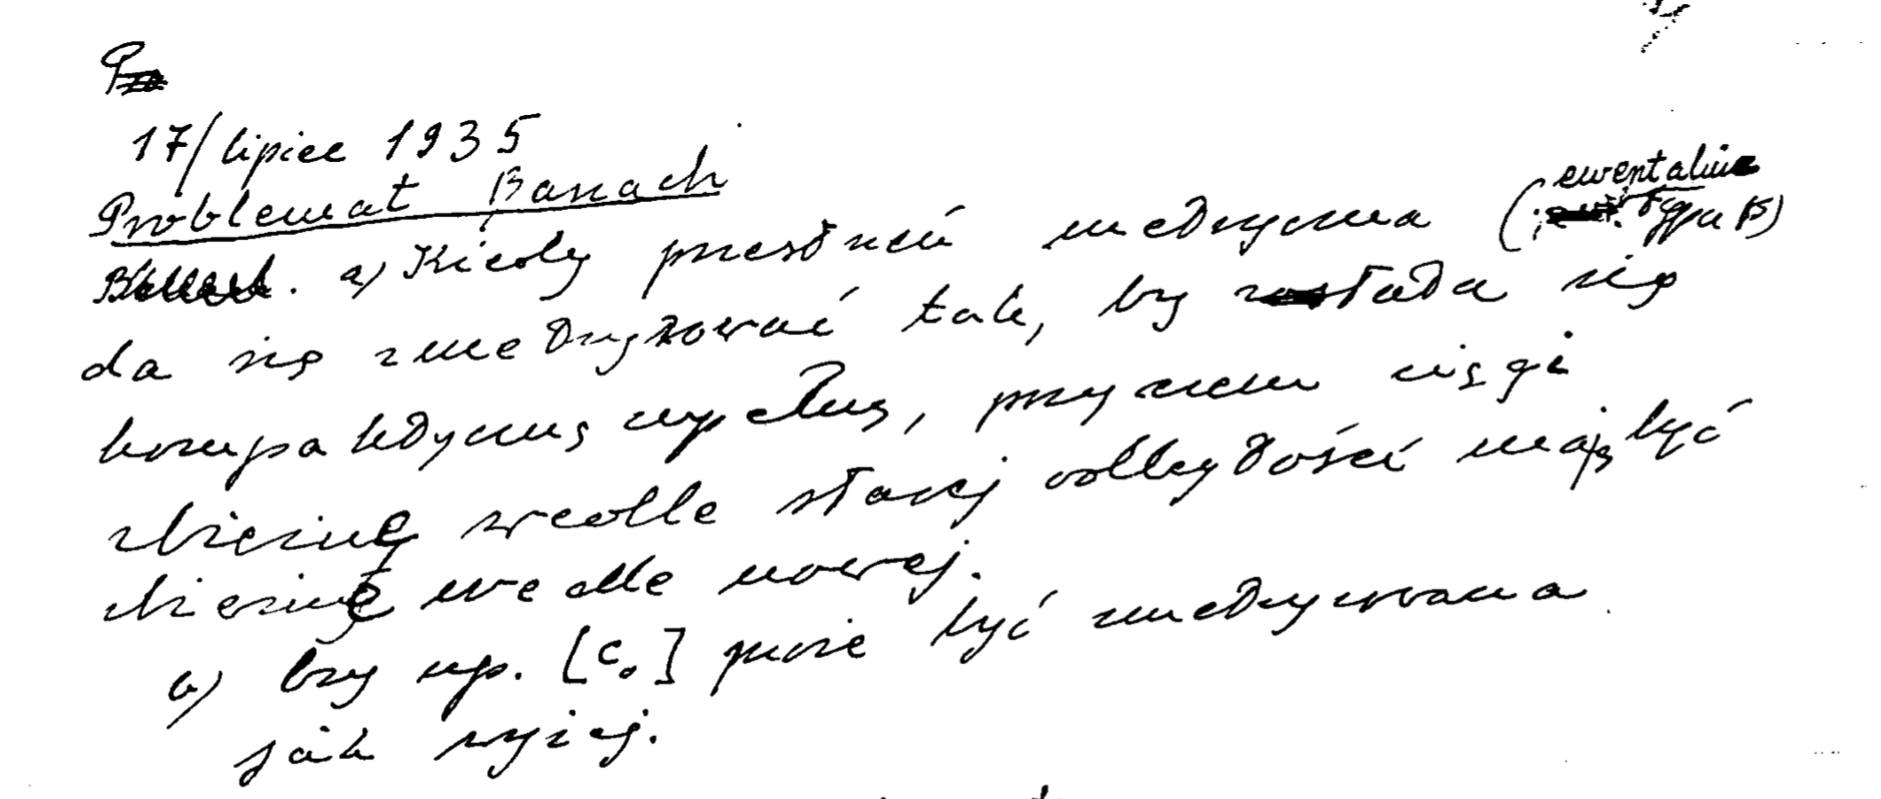 17/lipiec 1935
Problemat Banach
a) Kiedy przestrzeń metryczna (ewentalnie typu B)
da się zmetryzować tak, by stała się
kompaktyczną zupełną, przyczem ciągi
zbieżne wedle starej odległości mają być
zbieżne wedle nowej.
b) Czy np. [c₀] może być zmetryzowana
jak wyżej.